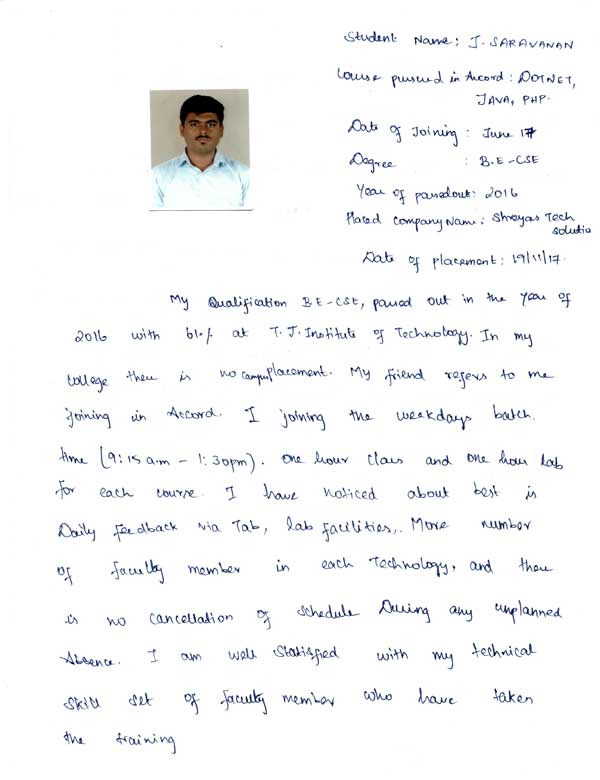 Student Name: J. SARAVANAN
Course pursued in Accord: DOTNET,
JAVA, PHP.
Date of Joining : June 17
Degree : B.E-CSE
Year of passedout: 2016
Placed Company Name: Shreyas Tech
solutio
Date of placement: 19/11/17.
My Qualification B.E-CSE, passed out in the year of
2016 with 61% at T.J. Institute of Technology. In my
college there is no campus placement. My friend refers to me
joining in Accord. I joining the weekdays batch.
time (9:15 a.m – 1:30pm). one hour class and one hour lab
for each course. I have noticed about best is
Daily feedback via Tab, lab facilities,. More number
of faculty member in each Technology, and there
is no cancellation of schedule During any unplanned
Absence. I am well Statisfied with my technical
skill set of faculty member who have taken
the training